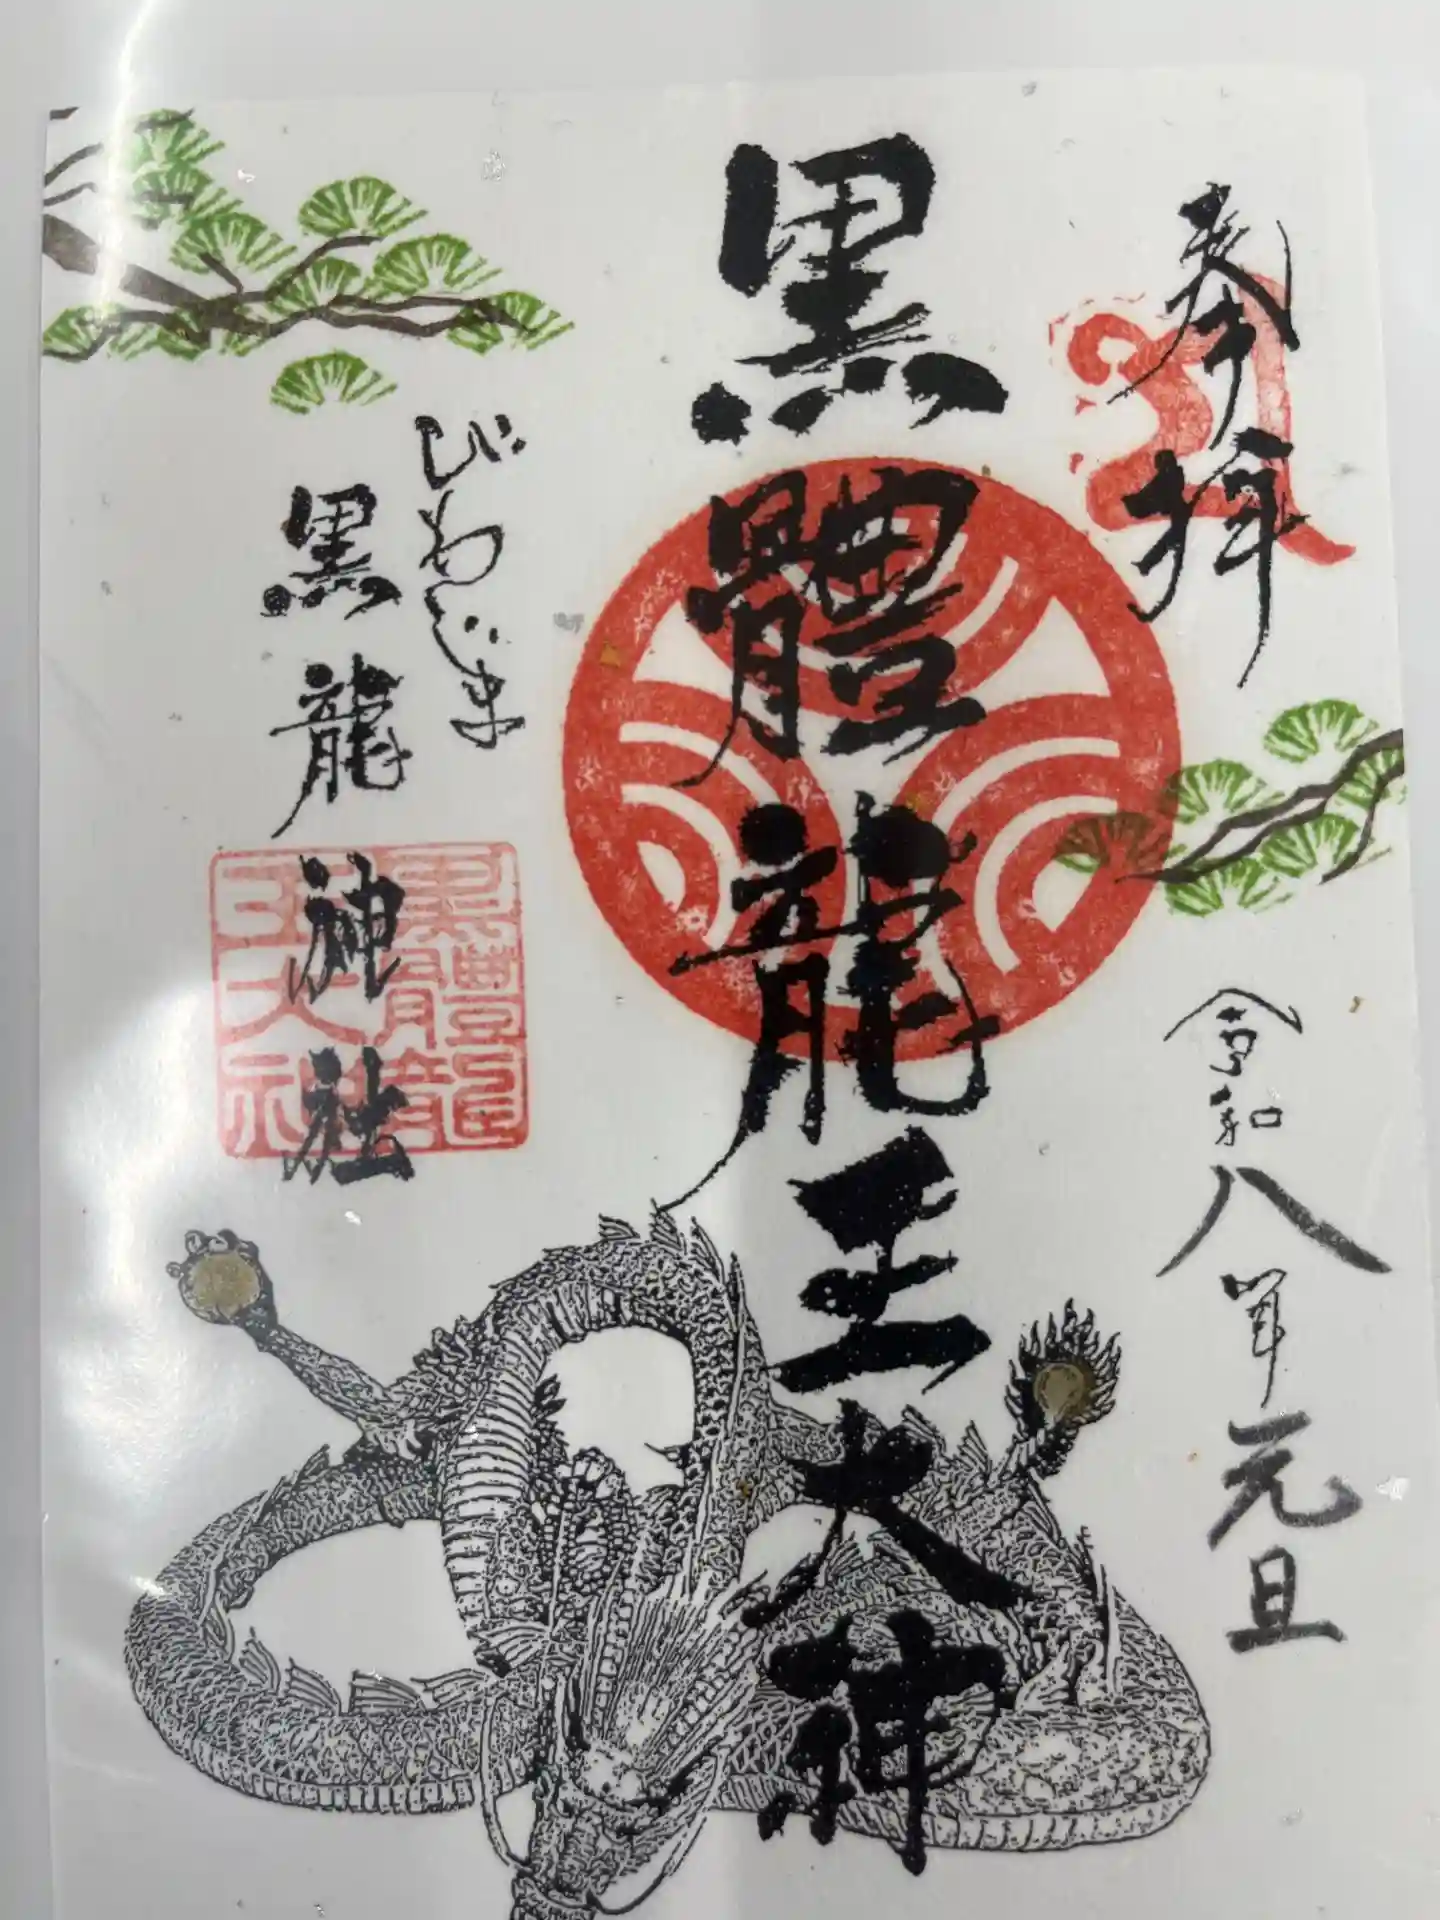 奉拝
令和八年元旦
黒體龍王大神
びわじま
黒龍神社
黒體龍
王大神